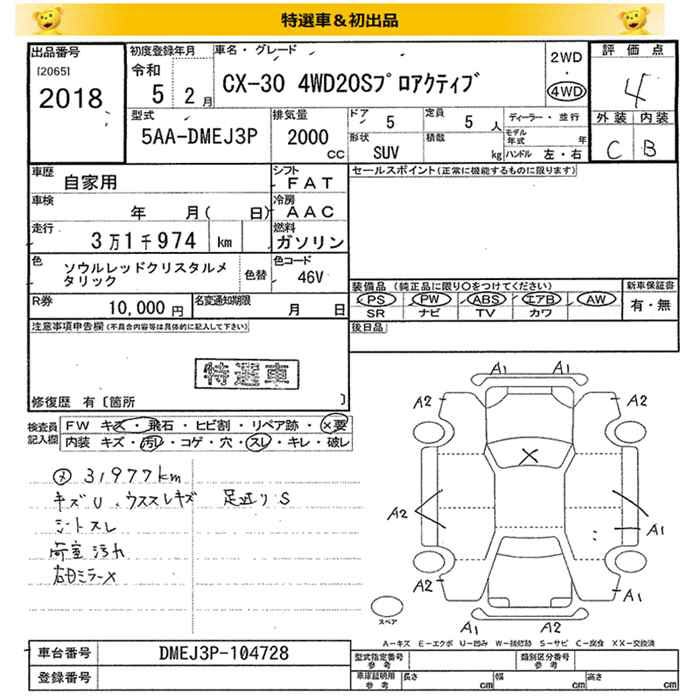 特選車＆初出品
出品番号
[2065]
2018
初度登録年月
令和
5 2月
車名・グレード
CX-30 4WD20Sプロアクティブ
2WD
・
4WD
評価点
4
外装 内装
C B
型式
5AA-DMEJ3P
排気量
2000
CC
ドア 5
定員 5 人
形状 SUV
積載 kg
ディーラー・並行
モデル年式 年
ハンドル 左・右
車歴 自家用
シフト FAT
車検 年 月( 日)
冷房 AAC
走行 3万1千974 km
燃料 ガソリン
色 ソウルレッドクリスタルメタリック
色替
色コード 46V
R券 10,000円
名変通知期限 月 日
セールスポイント(正常に機能するものに限ります)
装備品 (純正品に限り○をつけてください)
PS PW ABS エアB AW
SR ナビ TV カワ
新車保証書
有・無
後日品
注意事項申告欄(不具合内容等は具体的に記入して下さい)
特選車
修復歴 有〔箇所 〕
検査員記入欄
FW キズ・飛石・ヒビ割・リペア跡・×要
内装 キズ・汚れ・コゲ・穴・スレ・キレ・破レ
31977km
キズU、ウススレキズ 足辺りS
シートスレ
荷室汚れ
右ミラーX
A1 A1
A2 A2
X
A2 A1
A2 A1
A1 A2
スペア
A-キズ E-エクボ U-凹み W-補修跡 S-サビ C-腐食 XX-交換済
車台番号 DMEJ3P-104728
登録番号
型式指定番号 参考
類別区分番号 参考
車庫証明用 参考
長さ cm 幅 cm 高さ cm